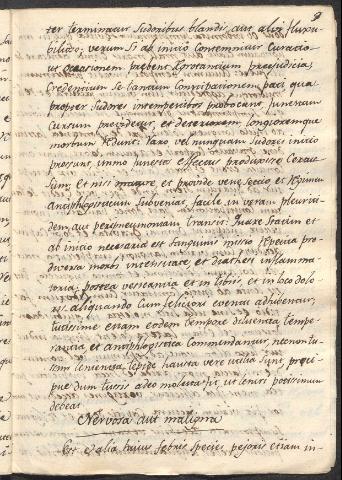 9
ter terminatur sudoribus blandis, aut alvi fluxu
bilioso; verum si ab initio contemnitur curatio
occasionem præbent ignorantium præjudicia,
credentium se tantum constipationem pati, qua
propter sudores intempestivos provocant, funeram
cursum et deteriorem, longioremque
morbum reddunt. raro vel nunquam sudores initio
prosunt, immo funestos effectus produxisse
sum; et nisi mature, et provide venæ sectio, et regimen
antiphlogisticum subveniat, facile in veram pleuri
dem, aut peripneumoniam transit. quare statim et
ab initio necessaria est sanguinis missio repetita pro
diversa morbi intensitate, et diathesi inflamma
toria; postea vesicantia et in tibiis, et in loco dolo
ris aliquando cum felici eventu adhibentur,
tutissime etiam eodem tempore diluentia, tempe
rantia, et antiphlogistica commendantur, necnon tus
sim lenientia, tepide hausta vere utilia sunt, præci
pue dum tussis adeo molesta fit, ut leniri potissimum
debeat.
Nervosa aut maligna
Est et alia hujus febris species pejoris etiam in-